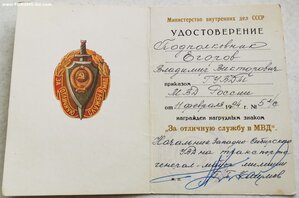 Министерство внутренних дел СССР
УДОСТОВЕРЕНИЕ
Подполковник
Егоров
Владимир Викторович
приказом ГУВДТ
МВД России
от 11 февраля 1994 г. №
награжден нагрудным знаком
"За отличную службу в МВД"
Начальник Западно-Сибирского
УВД на транспорте
генерал-майор милиции
ЗА ОТЛИЧНУЮ СЛУЖБУ